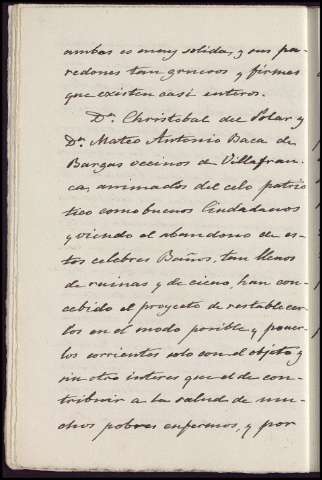 ambas es muy solida, y sus pa-
redones tan gruesos y firmes
que existen casi enteros.
Dn. Christobal del Solar y
Dn. Mateo Antonio Baca de
Bargas vecinos de Villafran-
ca, animados del celo patrio
tico como buenos Ciudadanos
y viendo el abandono de es-
tos celebres Baños, tan llenos
de ruinas y de cieno, han con-
cebido el proyecto de restablecer-
los en el modo posible y poner-
los corrientes solo con el objeto y
sin otro interes que el de con-
tribuir a la salud de mu-
chos pobres enfermos, y por